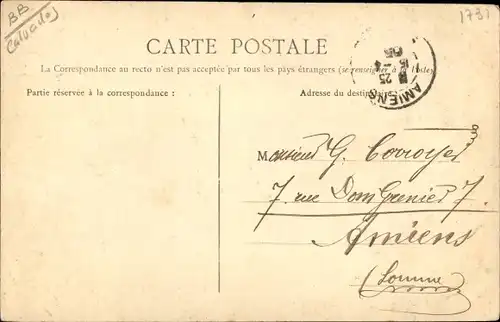 BB
Calvados
1737
CARTE POSTALE
La Correspondance au recto n'est pas acceptée par tous les pays étrangers (se renseigner à la Poste)
Partie réservée à la correspondance :
Adresse du destinataire
AMIENS
Monsieur G. Corroyer
7, rue Dom Grenier 7
Amiens
(Somme)